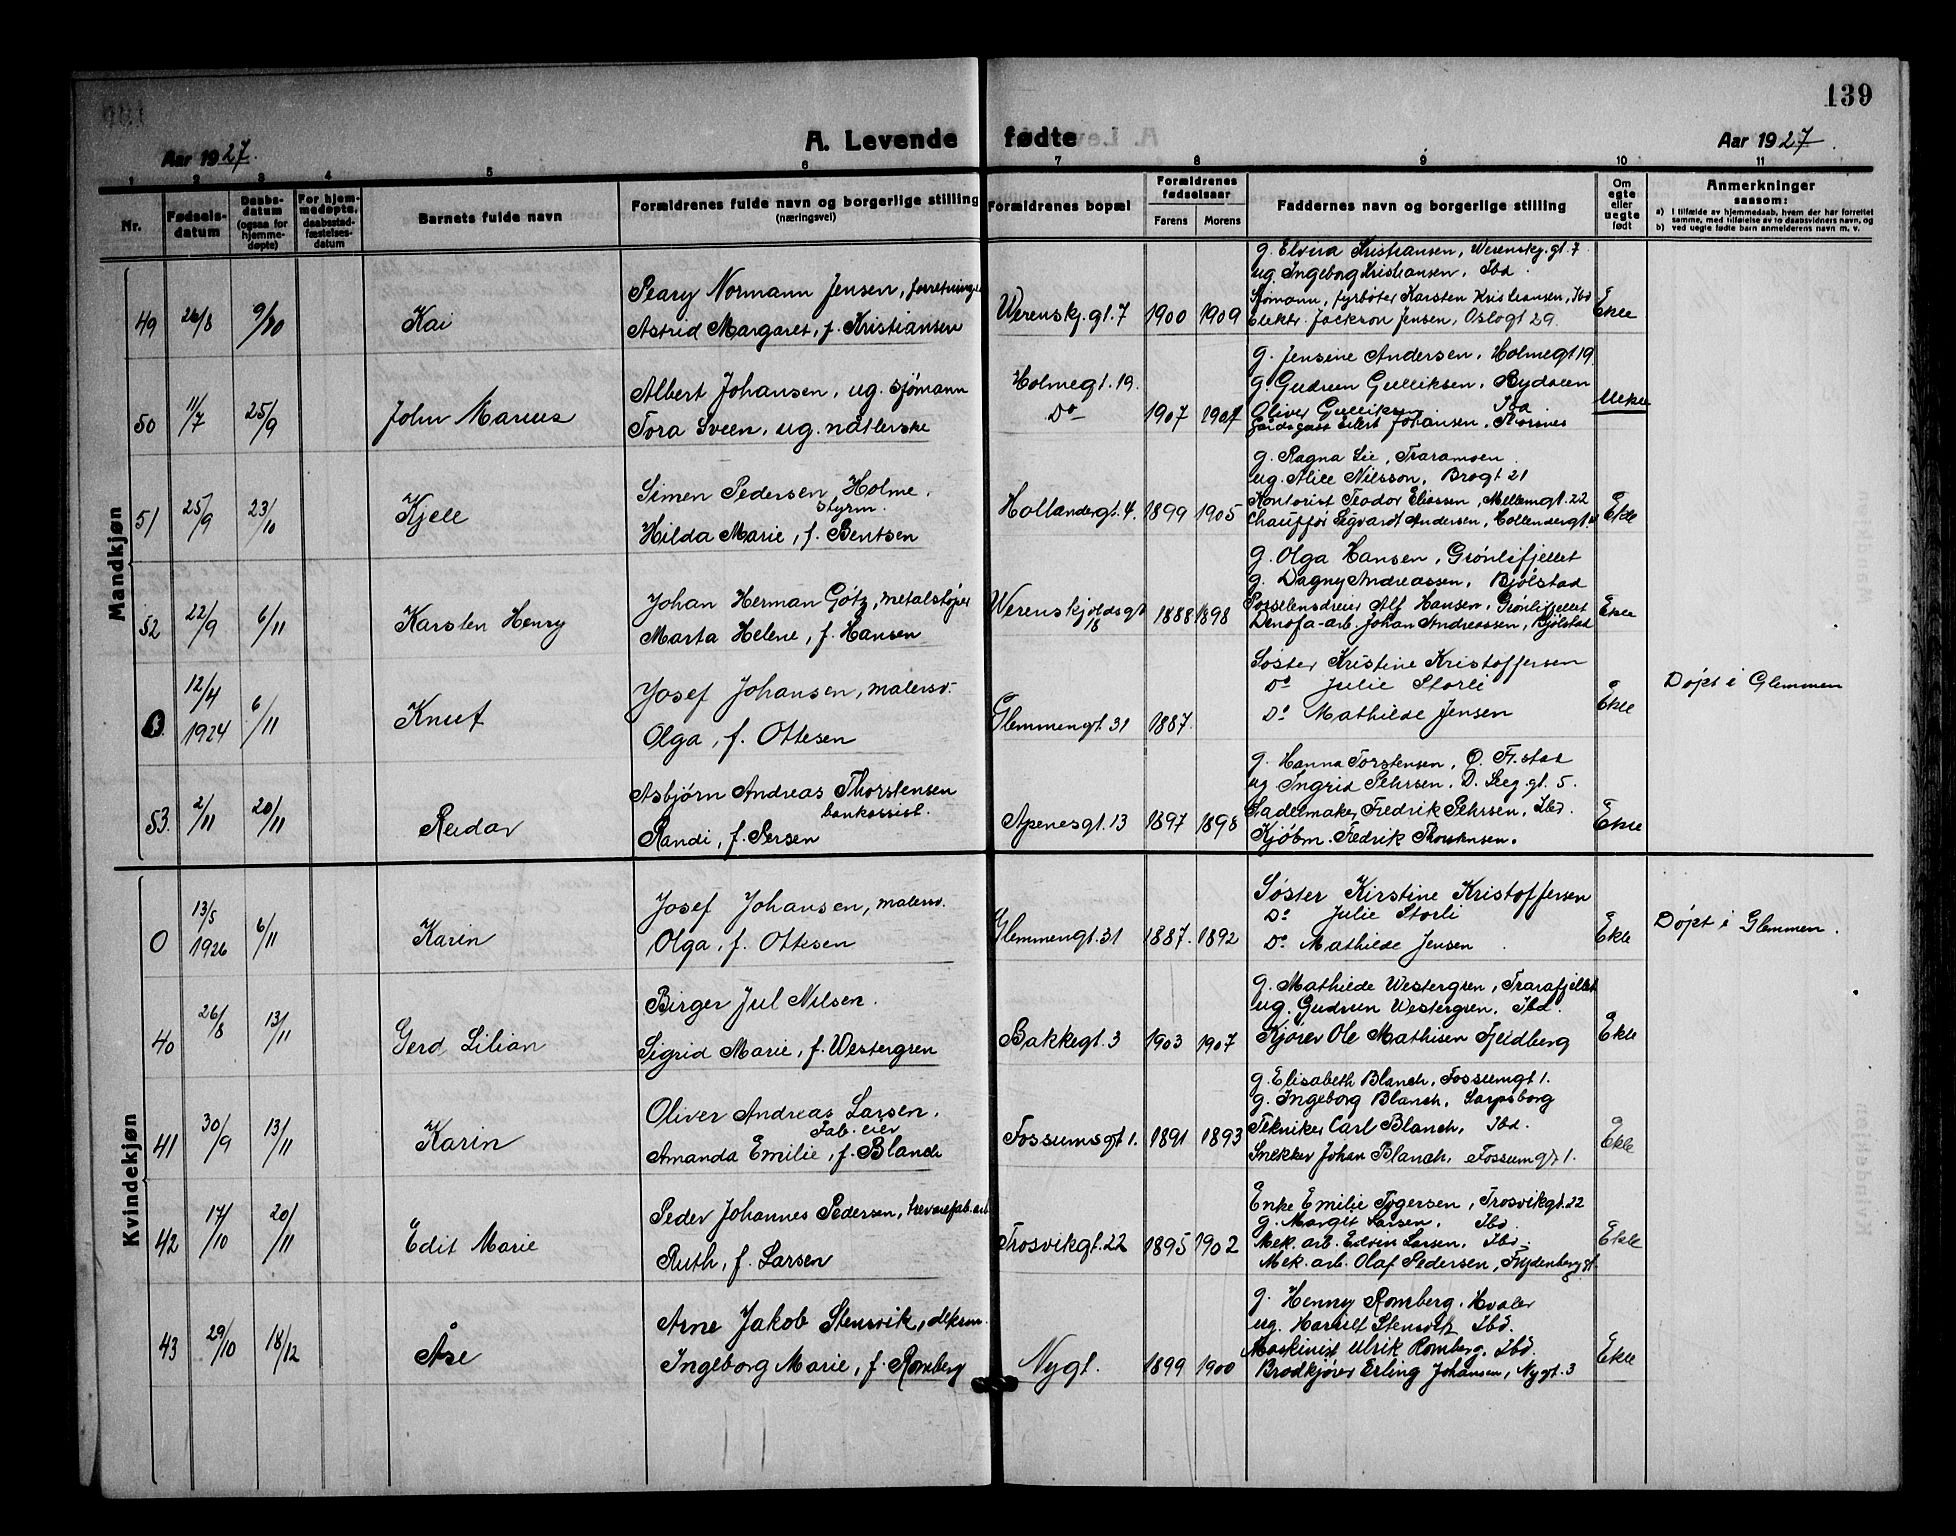 139
Aar 1927.
A. Levende fødte
Aar 1927.
1 2 3 4 5 6 7 8 9 10 11
Nr.
Fødsels-
datum
Daabs-
datum
(ogsaa for
hjemme-
døpte)
For hjem-
medøpte,
daabsstad-
fæstelses-
datum
Barnets fulde navn
Forældrenes fulde navn og borgerlige stilling
(næringsvei)
Forældrenes bopæl
Forældrenes
fødselsaar
Farens Morens
Faddernes navn og borgerlige stilling
Om
egte
eller
uegte
født
Anmerkninger
saasom:
a) I tilfælde av hjemmedaab, hvem der har forrettet
samme, med tilføielse av to daabsvidners navn, og
b) ved uegte fødte barn anmelderens navn m. v.
Mandkjøn
49 26/8 9/10 Kai
Peary Normann Jensen, forretnings
Astrid Margaret, f. Kristiansen
Werenskj.gt. 7 1900 1909
g. Elvira Kristiansen, Werenskj.gt. 7
ug. Ingeborg Kristiansen, Ibd.
Sjømann, fyrbøter Karsten Kristiansen, Ibd
Elektr. Jackson Jensen, Oslogt 29.
Ekte
50 11/7 25/9 John Marius
Albert Johansen, ug. sjømann
Tora Sveen, ug.
Holmegt. 19.
Do 1907 1907
g. Jensine Andersen, Holmegt 19
g. Gudrun Gulliksen, Rydalen
Oliver Gulliksen Ibd
Gårdsgutt Eilert Johansen, Torsnes
Uekte
51 25/9 23/10 Kjell
Simen Pedersen Holme,
Styrm.
Hilda Marie, f. Bentsen
Hollendergt. 4. 1899 1905
g. Ragna Lie, Traramoen
ug. Alice Nilsson, Brogt 21
Kontorist Teodor Eliassen, Mellemgt. 22
Chauffør Sigvardt Andersen, Hollendergt
Ekte
52 22/9 6/11 Karsten Henry
Johan Herman Götz, metalstøper
Marta Helene, f. Hansen
Werenskjoldsgt
18 1888 1898
g. Olga Hansen, Grønlifjellet
g. Dagny Andreassen, Bjølstad
Porselensdreier Alf Hansen, Grønlifjellet
Denofa-arb. Johan Andreassen, Bjølstad
Ekte
0 12/4
1924 6/11 Knut
Josef Johansen, malersv.
Olga, f. Ottesen
Glemmengt 31 1887.
Søster Kristine Kristoffersen
Do Julie Storli
Do Mathilde Jensen
Ekte
Døpt i Glemmen
53. 2/11 20/11 Reidar
Asbjørn Andreas Thorstensen
bankassist.
Randi, f. Persen
Apenesgt. 13 1897 1898
g. Hanna Torstensen, Ø. Fr.stad
ug Ingrid Pehrsen, D. Seeg.gt. 5.
Sadelmaker Fredrik Pehrsen, Ibd.
Kjøbm. Fredrik Thorstensen.
Ekte
Kvindekjøn
0 13/5
1926 6/11 Karin
Josef Johansen, malersv.
Olga, f. Ottesen
Glemmengt. 31 1887. 1892
Søster Kirstine Kristoffersen
Do Julie Storli
Do Mathilde Jensen
Ekte
Døpt i Glemmen.
40 26/8 13/11 Gerd Lilian
Birger Jul Nilsen.
Sigrid Marie, f. Westergren
Bakkegt. 3 1903 1907
g. Mathilde Westergren, Trarafjellet
ug. Gudrun Westergren, Ibd.
Kjører Ole Mathisen Feldberg
Ekte
41 30/9 13/11 Karin
Oliver Andreas Larsen,
Fab. eier
Amanda Emilie, f. Blanch
Fossumsgt 1. 1891 1893
g. Elisabeth Blanch, Fossumgt 1.
g. Ingeborg Blanch, Sarpsborg
Tekniker Carl Blanch, Ibd.
Snekker Johan Blanch, Fossumgt 1.
Ekte
42 17/10 20/11 Edit Marie
Peder Johannes Pedersen, trevarefab.arb
Ruth, f. Larsen
Trosvikgt. 22 1895 1902
Enke Emilie Tygersen, Trosvikgt. 22
g. Margit Larsen, Ibd.
Mek. arb. Edvin Larsen, Ibd.
Mek. arb. Olaf Pedersen, Frydenberggt.
Ekte
43 29/10 18/12 Åse
Arne Jakob Stensvik,
Ingeborg Marie, f. Romberg
Nygt. 1899 1900
g. Henny Romberg, Hvaler
ug. Harriet Stensvik Ibd.
Maskinist Ulrik Romberg, Ibd.
Brødkjører Erling Johansen, Nygt. 3
Ekte